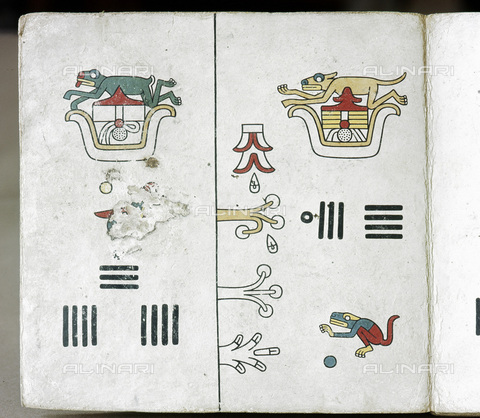 ALINARI
ALINARI
ALINARI
ALINARI
ALINARI
ALINARI